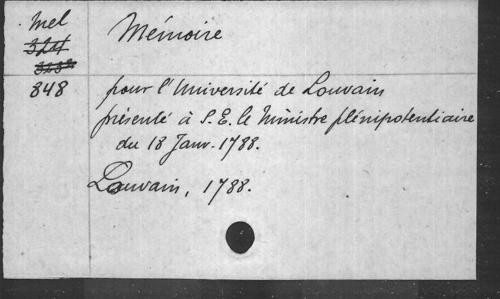 Mel
324
848
Mémoire
pour l'Université de Louvain
présenté à S. E. le Ministre plénipotentiaire
du 18 Janv. 1788.
Louvain, 1788.